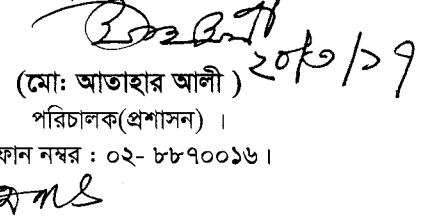 ২০/৩/১৭
(মো: আতাহার আলী )
পরিচালক(প্রশাসন) ।
ফোন নম্বর : ০২- ৮৮৭০০১৬।